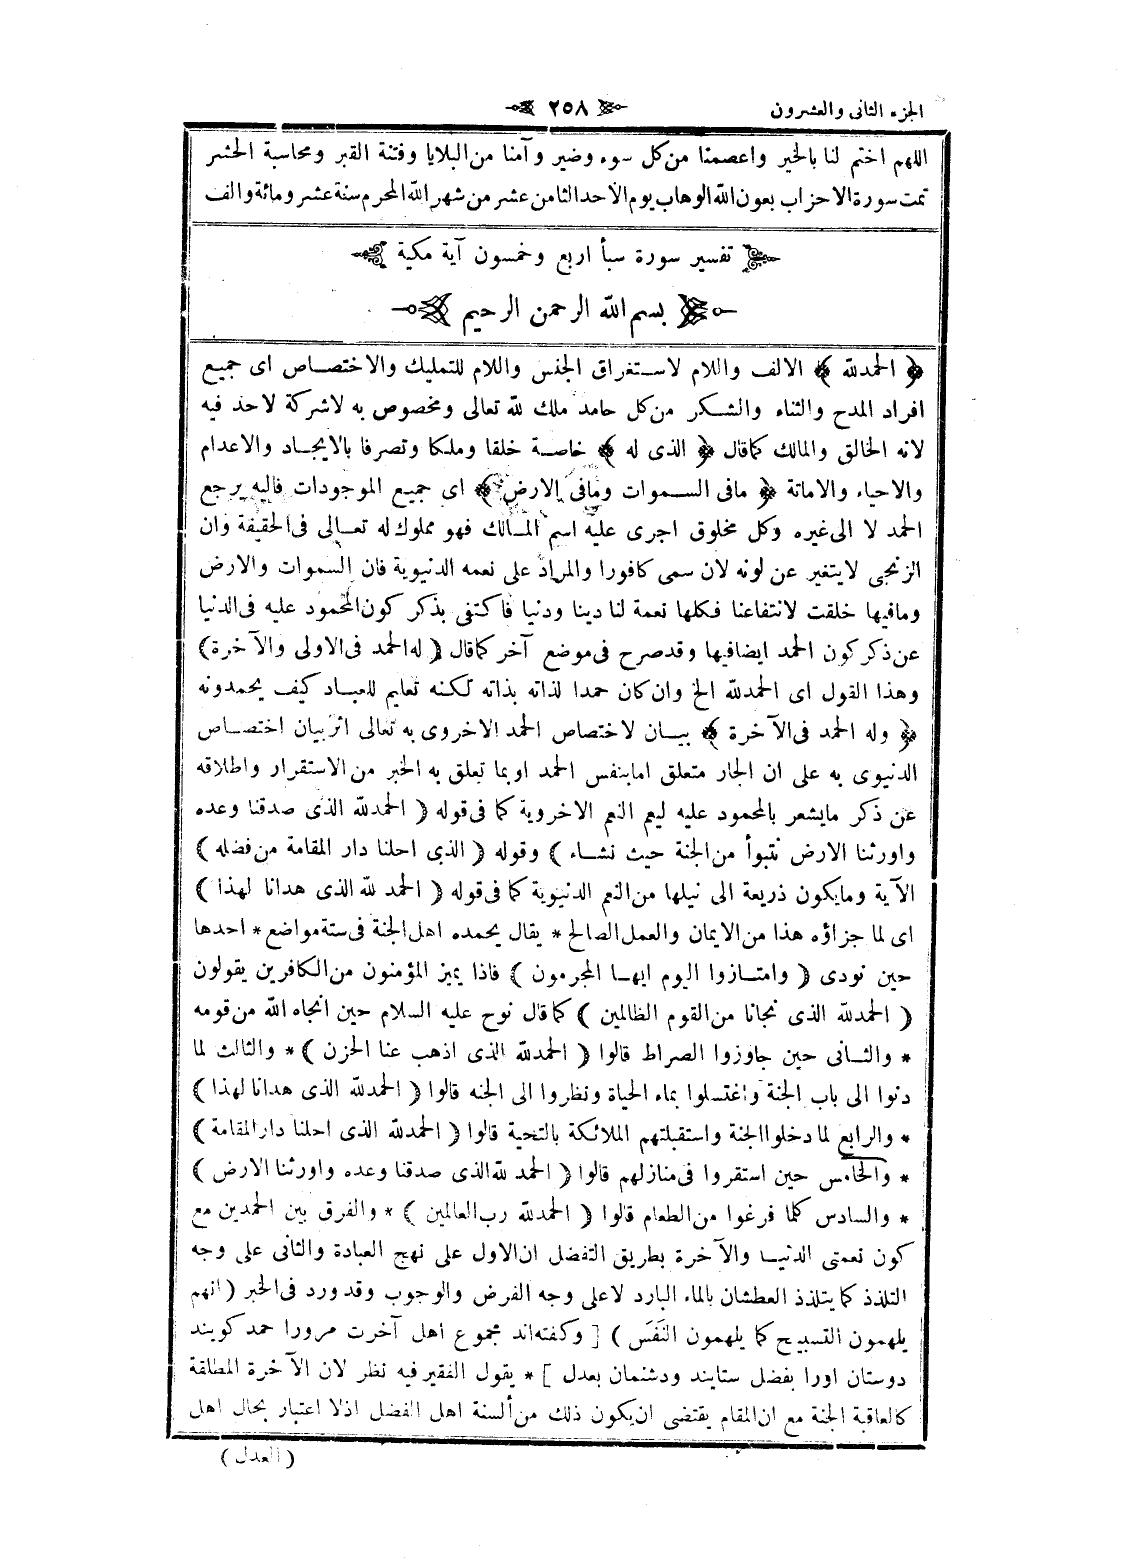 الجزء الثانى والعشرون
٢٥٨
اللهم اختم لنا بالخير واعصمنا من كل سوء وضير وآمنا من البلايا وفتنة القبر ومحاسبة الحشر
تمت سورة الاحزاب بعون الله الوهاب يوم الاحد الثامن عشر من شهر الله المحرم سنة عشر ومائة والف
تفسير سورة سبأ اربع وخمسون آية مكية
بسم الله الرحمن الرحيم
﴿ الحمد لله ﴾ الالف واللام لاستغراق الجنس واللام للتمليك والاختصاص اى جميع
افراد المدح والثناء والشكر من كل حامد ملك لله تعالى ومخصوص به لاشركة لاحد فيه
لانه الخالق والمالك كما قال ﴿ الذى له ﴾ خاصة خلقا وملكا وتصرفا بالايجاد والاعدام
والاحياء والاماتة ﴿ مافى السموات ومافى الارض ﴾ اى جميع الموجودات فاليه يرجع
الحمد لا الى غيره وكل مخلوق اجرى عليه اسم المالك فهو مملوك له تعالى فى الحقيقة وان
الزنجى لايتغير عن لونه لان سمى كافورا والمراد على نعمه الدنيوية فان السموات والارض
ومافيها خلقت لانتفاعنا فكلها نعمة لنا دينا ودنيا فاكتفى بذكر كون المحمود عليه فى الدنيا
عن ذكر كون الحمد ايضا فيها وقد صرح فى موضع آخر كما قال ( له الحمد فى الاولى والآخرة )
وهذا القول اى الحمد لله الخ وان كان حمدا لذاته بذاته لكنه تعليم للعباد كيف يحمدونه
﴿ وله الحمد فى الآخرة ﴾ بيان لاختصاص الحمد الاخروى به تعالى اثر بيان اختصاص
الدنيوى به على ان الجار متعلق اما بنفس الحمد او بما تعلق به الخبر من الاستقرار واطلاقه
عن ذكر مايشعر بالمحمود عليه ليعم النعم الاخروية كما فى قوله ( الحمد لله الذى صدقنا وعده
واورثنا الارض نتبوأ من الجنة حيث نشاء ) وقوله ( الذى احلنا دار المقامة من فضله )
الآية ومايكون ذريعة الى نيلها من النعم الدنيوية كما فى قوله ( الحمد لله الذى هدانا لهذا )
اى لما جزاؤه هذا من الايمان والعمل الصالح * يقال يحمده اهل الجنة فى ستة مواضع * احدها
حين نودى ( وامتازوا اليوم ايها المجرمون ) فاذا يميز المؤمنون من الكافرين يقولون
( الحمد لله الذى نجانا من القوم الظالمين ) كما قال نوح عليه السلام حين انجاه الله من قومه
* والثانى حين جاوزوا الصراط قالوا ( الحمد لله الذى اذهب عنا الحزن ) * والثالث لما
دنوا الى باب الجنة واغتسلوا بماء الحياة ونظروا الى الجنه قالوا ( الحمد لله الذى هدانا لهذا )
* والرابع لما دخلوا الجنة واستقبلتهم الملائكة بالتحية قالوا ( الحمد لله الذى احلنا دار المقامة )
* والخامس حين استقروا فى منازلهم قالوا ( الحمد لله الذى صدقنا وعده واورثنا الارض )
* والسادس كلما فرغوا من الطعام قالوا ( الحمد لله رب العالمين ) * والفرق بين الحمدين مع
كون نعمتى الدنيا والآخرة بطريق التفضل ان الاول على نهج العبادة والثانى على وجه
التلذذ كما يتلذذ العطشان بالماء البارد لا على وجه الفرض والوجوب وقد ورد فى الخبر ( انهم
يلهمون التسبيح كما يلهمون النَفَس ) [ وكفته اند مجموع اهل آخرت مرورا حمد كويند
دوستان اورا بفضل ستايند ودشمنان بعدل ] * يقول الفقير فيه نظر لان الآخرة المطلقة
كالعاقبة الجنة مع ان المقام يقتضى ان يكون ذلك من ألسنة اهل الفضل اذلا اعتبار بحال اهل
( العدل )